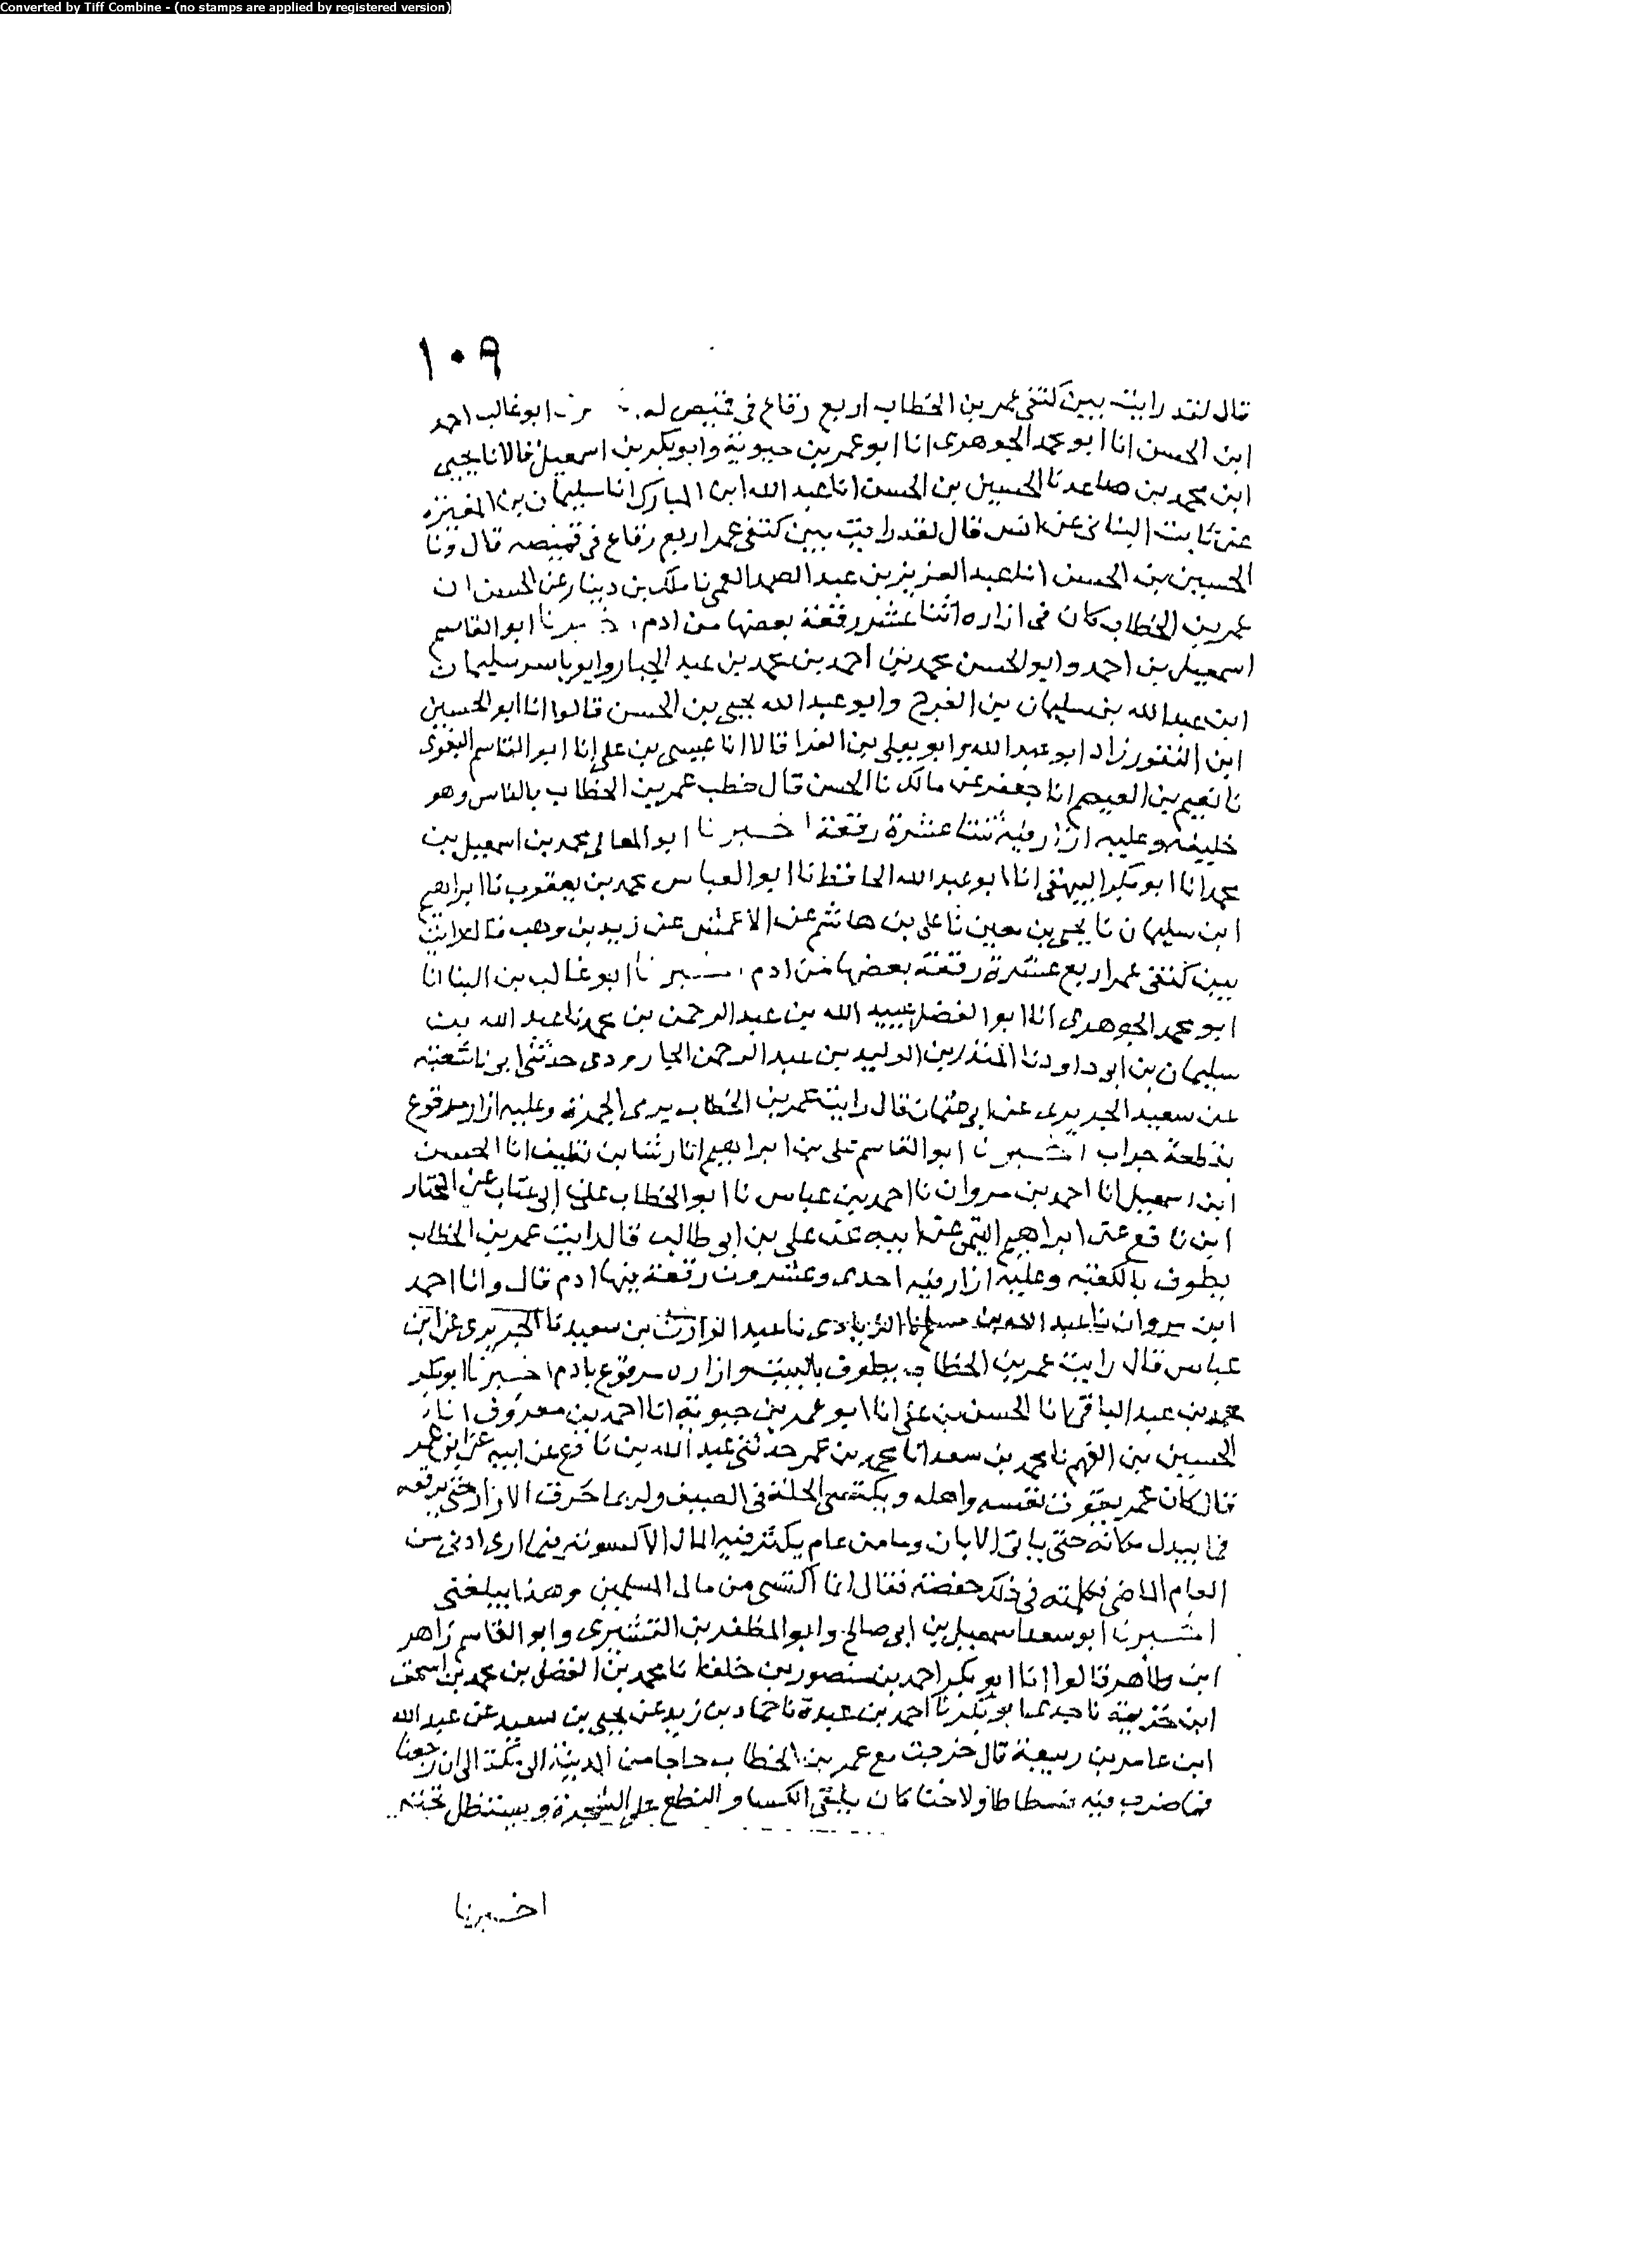 Converted by Tiff Combine - (no stamps are applied by registered version)
١٠٩
قال لقد رايت بين كتفى عمر بن الخطاب اربع رقاع فى قميص له ابو غالب احمد
ابن الحسن انا ابو محمد الجوهرى انا ابو عمر بن حيوية وابو بكر بن اسمعيل قالا نا يحيى
ابن محمد بن صاعد نا الحسين بن الحسن انا عبد الله ابن المبارك انا سليمان بن المغيرة
عن ثابت البنانى عن انس قال لقد رايت بين كتفى عمر اربع رقاع فى قميصه قال ونا
الحسين بن الحسن انا عبد العزيز بن عبد الصمد العمى نا ملك بن دينار عن الحسن ان
عمر بن الخطاب كان فى ازاره اثنا عشر رقعة بعضها من ادم اخبرنا ابو القاسم
اسمعيل بن احمد وابو الحسن محمد بن احمد بن محمد بن عبد الجبار وابو ياسر سليمان
ابن عبد الله بن سليمان بن الفرج وابو عبد الله يحيى بن الحسن قالوا انا ابو الحسين
ابن النقور زاد ابو عبد الله وابو يعلى بن الفرا قالا انا عيسى بن على انا ابو القاسم البغوى
نا نعيم بن الهيصم انا جعفر عن مالك نا الحسن قال خطب عمر بن الخطاب بالناس وهو
خليفه وعليه ازار فيه ثنتا عشرة رقعة اخبرنا ابو المعالى محمد بن اسمعيل بن
محمد انا ابو بكر البيهقى انا ابو عبد الله الحافظ نا ابو العباس محمد بن يعقوب نا ابراهيم
ابن سليمان نا يحيى بن معين نا على بن هاشم عن الاعمش عن زيد بن وهب قال رايت
بين كتفى عمر اربع عشرة رقعة بعضها من ادم اخبرنا ابو غالب بن البنا انا
ابو محمد الجوهرى انا ابو الفضل عبيد الله بن عبد الرحمن بن محمد نا عبد الله بن
سليمان بن ابو داود نا المنذر بن الوليد بن عبد الرحمن الجارودى حدثنى ابى نا شعبة
عن سعيد الجريرى عن ابى عثمان قال رايت عمر بن الخطاب يرمى الجمرة وعليه ازار مرقوع
بقطعة جراب اخبرنا ابو القاسم على بن ابراهيم انا رشا بن نظيف انا الحسن
ابن اسمعيل انا احمد بن مروان نا احمد بن عباس نا ابو الخطاب عن ابى عتاب عن المختار
ابن نافع عن ابراهيم التيمى عن ابيه عن على بن ابى طالب قال رايت عمر بن الخطاب
يطوف بالكعبة وعليه ازار فيه احدى وعشرون رقعة فيها ادم قال وانا احمد
ابن مروان نا عبد الله بن مسلم نا الزيادى نا عبد الوارث بن سعيد نا الجريرى عن ابن
عباس قال رايت عمر بن الخطاب يطوف بالبيت وازاره مرقوع بادم اخبرنا ابو بكر
محمد بن عبد الباقى انا الحسن بن على انا ابو عمر بن حيوية انا احمد بن معروف انا
الحسين بن الفهم نا محمد بن سعد انا محمد بن عمر حدثنى عبد الله بن نافع عن ابيه عن ابن عمر
قال كان عمر يقوت نفسه واهله ويكتسى الحلة فى الصيف ولربما خرق الازار حتى يرقعه
فما يبدل مكانه حتى ياتى الابان وما من عام يكثر فيه المال الا كسوته فيما ارى ادنى من
العام الماضى فكلمته فى ذلك حفصة فقال انا اكتسى من مال المسلمين وهذا يبلغنى
اخبرنا ابو سعد اسمعيل بن ابى صالح وابو المظفر بن القشيرى وابو القاسم زاهر
ابن طاهر قالوا انا ابو بكر احمد بن منصور بن خلف انا محمد بن الفضل بن محمد بن اسحق
ابن خزيمة نا جدى ابو بكر نا احمد بن عبدة نا حماد بن زيد عن يحيى بن سعيد عن عبد الله
ابن عامر بن ربيعة قال خرجت مع عمر بن الخطاب حاجا من المدينة الى مكة الى ان رجعنا
فما ضرب فيه فسطاطا ولا خبا كان يلقى الكسا والنطع على الشجرة ويستظل تحته
اخبرنا